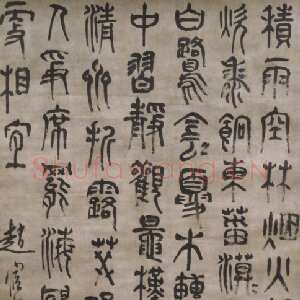 積雨空林烟火
炊黍餉東菑漠
白鷺陰夏木囀
中習靜觀朝槿
清齋折露葵
人爭席罷海鷗
更相疑 趙宧